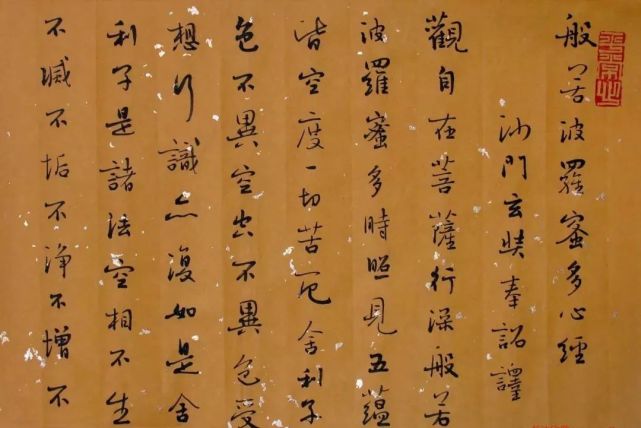 般若波羅蜜多心經
沙門玄奘奉詔譯
觀自在菩薩行深般若
波羅蜜多時照見五蘊
皆空度一切苦厄舍利子
色不異空空不異色受
想行識亦復如是舍
利子是諸法空相不生
不滅不垢不淨不增不